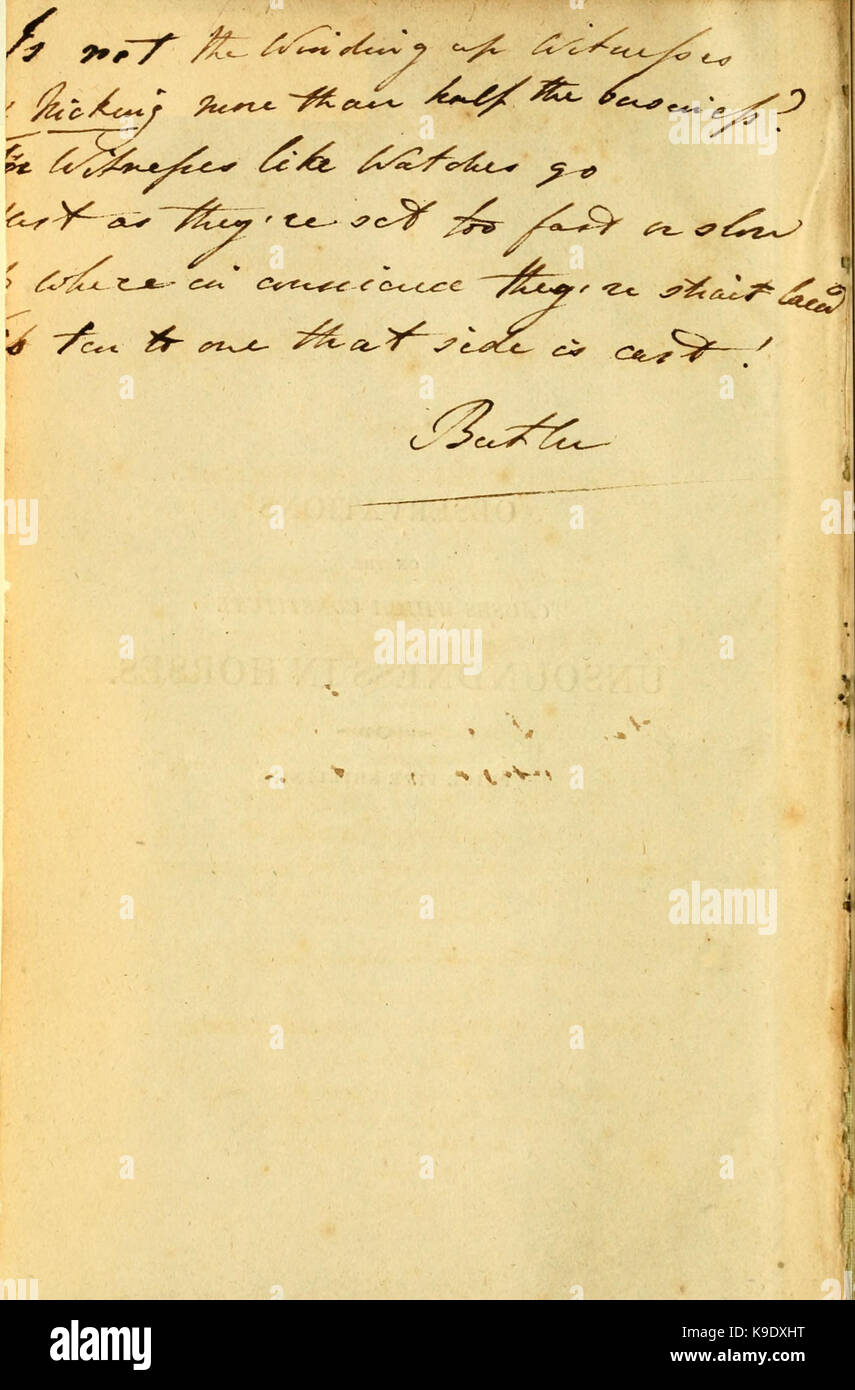 Is not the Winding up Witnesses
Nicking more than half the business?
For Witnesses like Watches go
Just as they're set too fast or slow
where in conscience they're strait laced
ten to one that side is cast!
Butler
OBSERVATIONS
ON THE
CAUSES WHICH CONSTITUTE
UNSOUNDNESS IN HORSES.
alamy
alamy
Image ID: K9DXHT
www.alamy.com